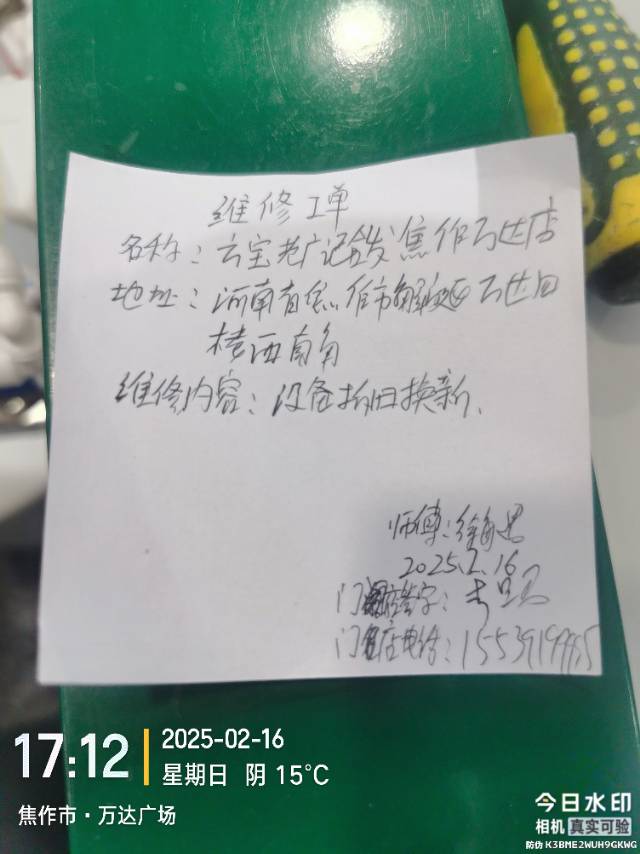 维修工单
名称：云宝赴广记 焦作万达店
地址：河南省焦作市解放区万达
楼西南角
维修内容：设备拆旧换新、
师傅：徐
2025.2.16
门店签字：
门店电话：
17:12
2025-02-16
星期日 阴 15°C
焦作市·万达广场
今日水印
相机 真实可验
防伪 K3BME2WUH9GKWG